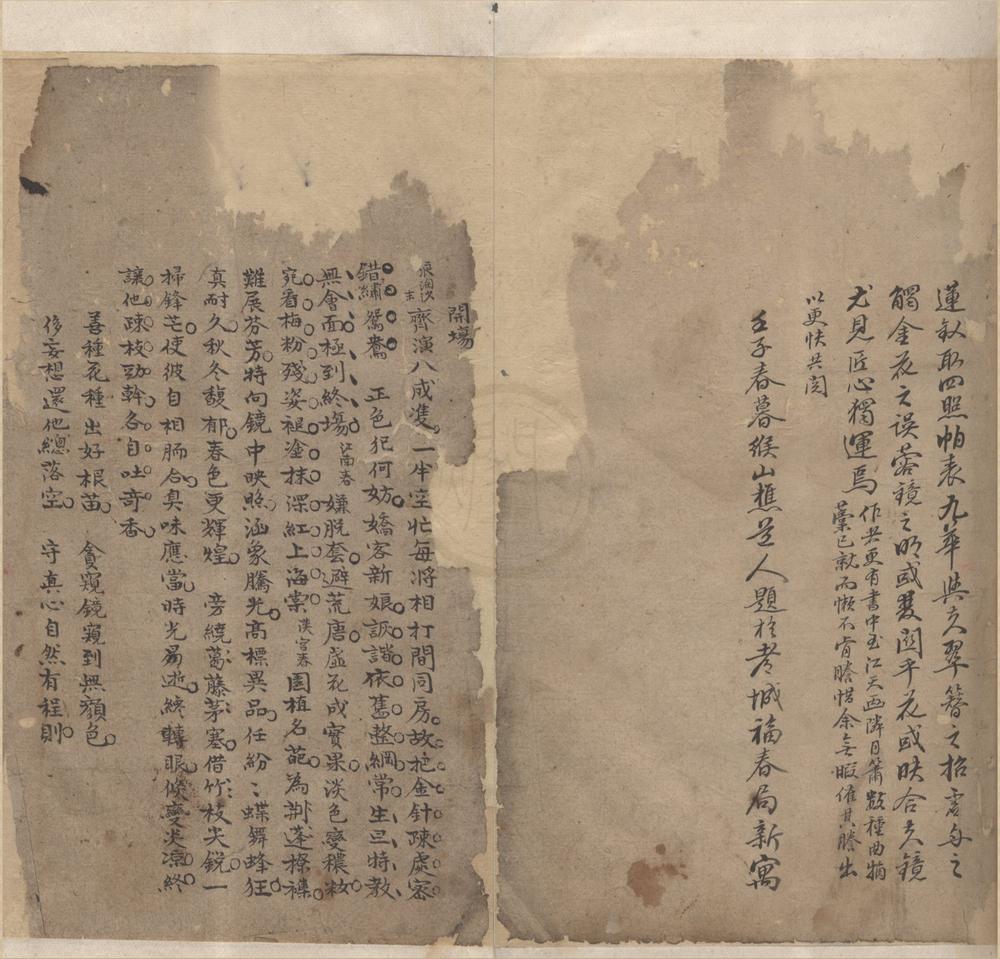 蓮釵取四照帕表九華與夫翠簪之招書舟之
觸金花之誤菱鏡之明或雙關乎花或映合夫鏡
尤見匠心獨運焉 作者更有書中玉江天西隣月簫數種曲稿
藁已就而懶不肯謄惜余無暇催其謄出
以更快共閱
壬子春暮緱山樵䒭人題於耆城福春局新寓
開塲
浪淘沙
末 齊演八成雙一半空忙每將相打間同房故把金針疎處密
錯繡鴛鴦 正色犯何妨嬌客新娘詼諧依舊整綱常生旦特教
無會面極到終塲 江南春 嫌脱套避荒唐虛花成實果淡色變穠妝
宛看梅粉殘姿褪塗抹深紅上海棠 漢宮春 園植名葩為荆蓬榛襍
難展芬芳特向鏡中映照涵象騰光高標異品任紛〻蝶舞蜂狂
真耐久秋冬馥郁春色更輝煌 旁繞葛藤茅塞借竹枝尖鋭一
掃鋒芒使彼自相脗合臭味應當時光易逝終轉眼倏變炎凉終
讓他疎枝勁幹各自吐奇香
善種花種出好根苗 貪窺鏡窺到無顏色
侈妄想還他總落空 守真心自然有程則